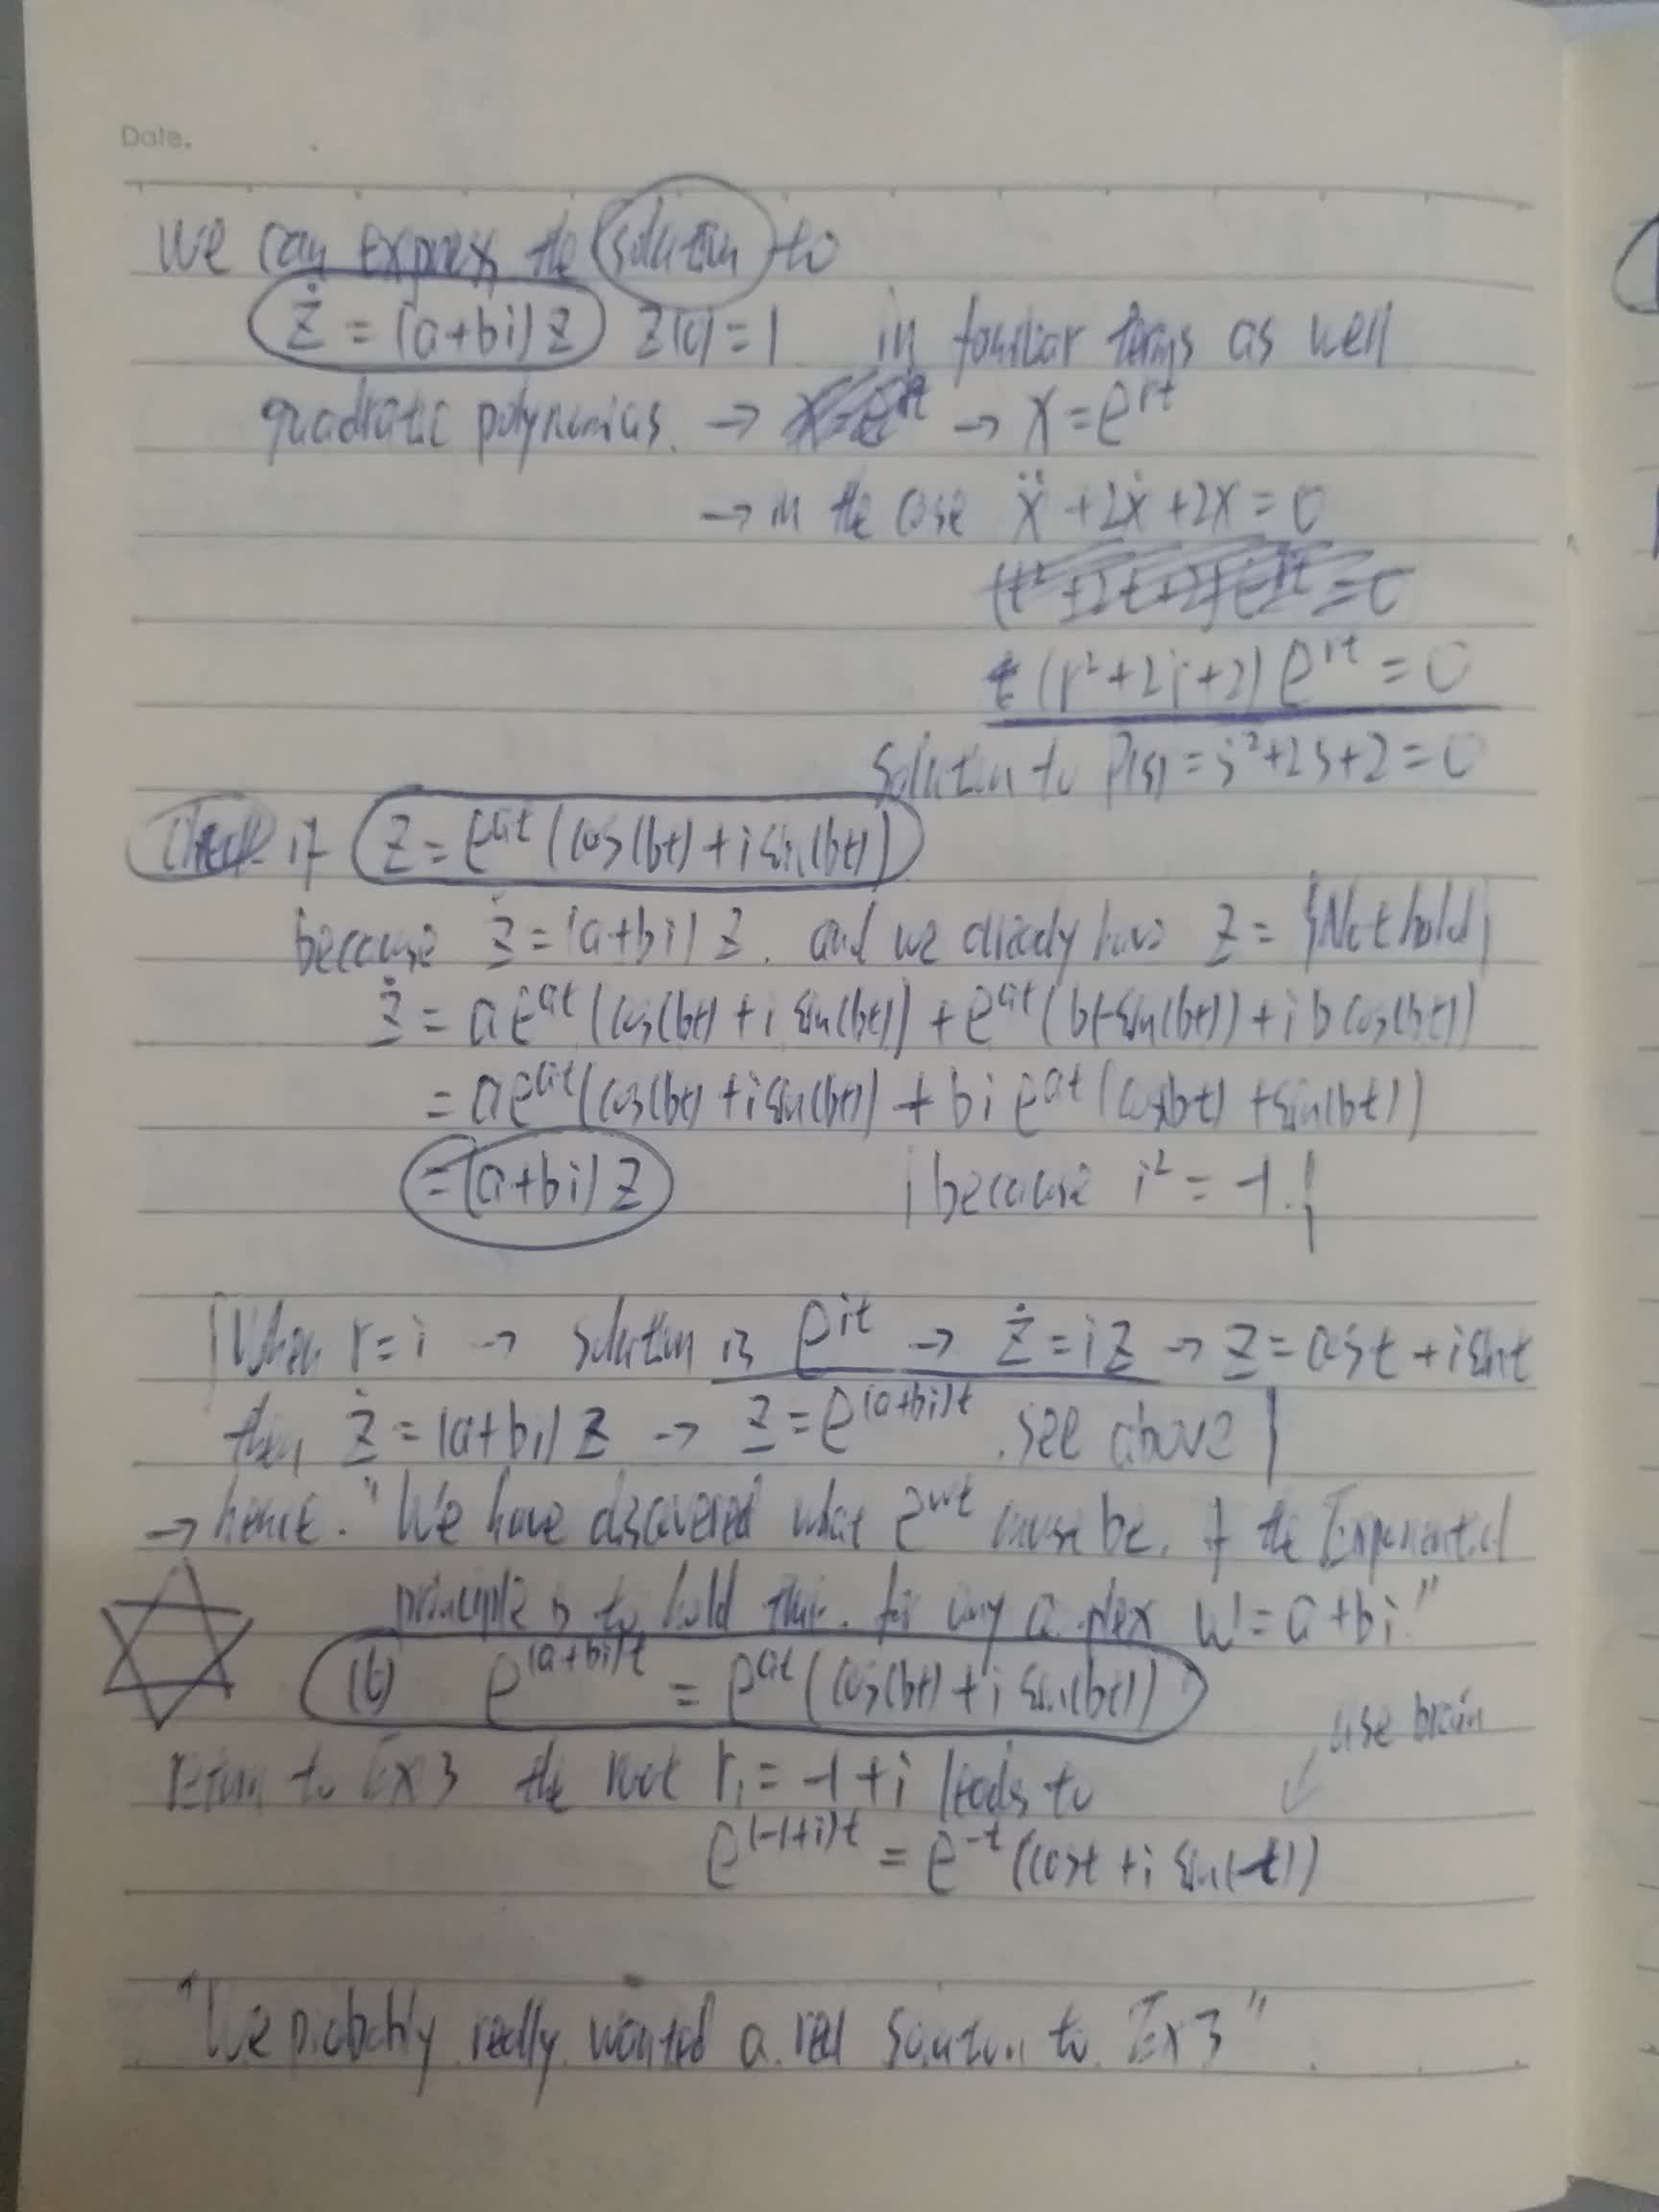 Date.
We can express the solution to
ż = (a+bi) z z(0) = 1 in familiar terms as well
quadratic polynomials. → x = e^rt → x = e^rt
→ in the case ẍ + 2ẋ + 2x = 0
(t² + 2t + 2) e^rt = 0
(r² + 2r + 2) e^rt = 0
Solution to P(s) = s² + 2s + 2 = 0
Check if z = e^at (cos(bt) + i sin(bt))
because ż = (a+bi) z. and we already have z = {Not hold}
ż = a e^at (cos(bt) + i sin(bt)) + e^at (b(-sin(bt)) + i b cos(bt))
= a e^at (cos(bt) + i sin(bt)) + bi e^at (cos(bt) + sin(bt))
= (a+bi) z | because i² = -1. |
| When r = i → solution is e^it → ż = iz → z = cost + i sint
then ż = (a+bi) z → z = e^(a+bi)t. see above |
→ hence. "We have discovered what e^wt must be, if the Exponential
principle is to hold for any complex w = a + bi."
(6) e^(a+bi)t = e^at (cos(bt) + i sin(bt))
use brain
return to Ex 3 the root r₁ = -1 + i leads to
e^(-1+i)t = e^-t (cost + i sin(-t))
"We probably really wanted a real solution to Ex 3"